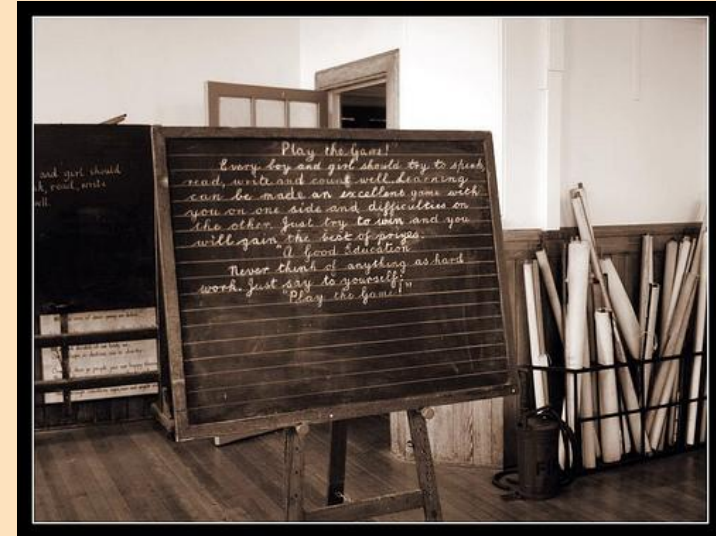 Play the Game!
Every boy and girl should try to speak,
read, write and count well. Learning
can be made an excellent game with
you on one side and difficulties on
the other. Just try to win and you
will gain the best of prizes.
"A Good Education
Never think of anything as hard
work. Just say to yourself:
"Play the Game!"
and girl should
read, write